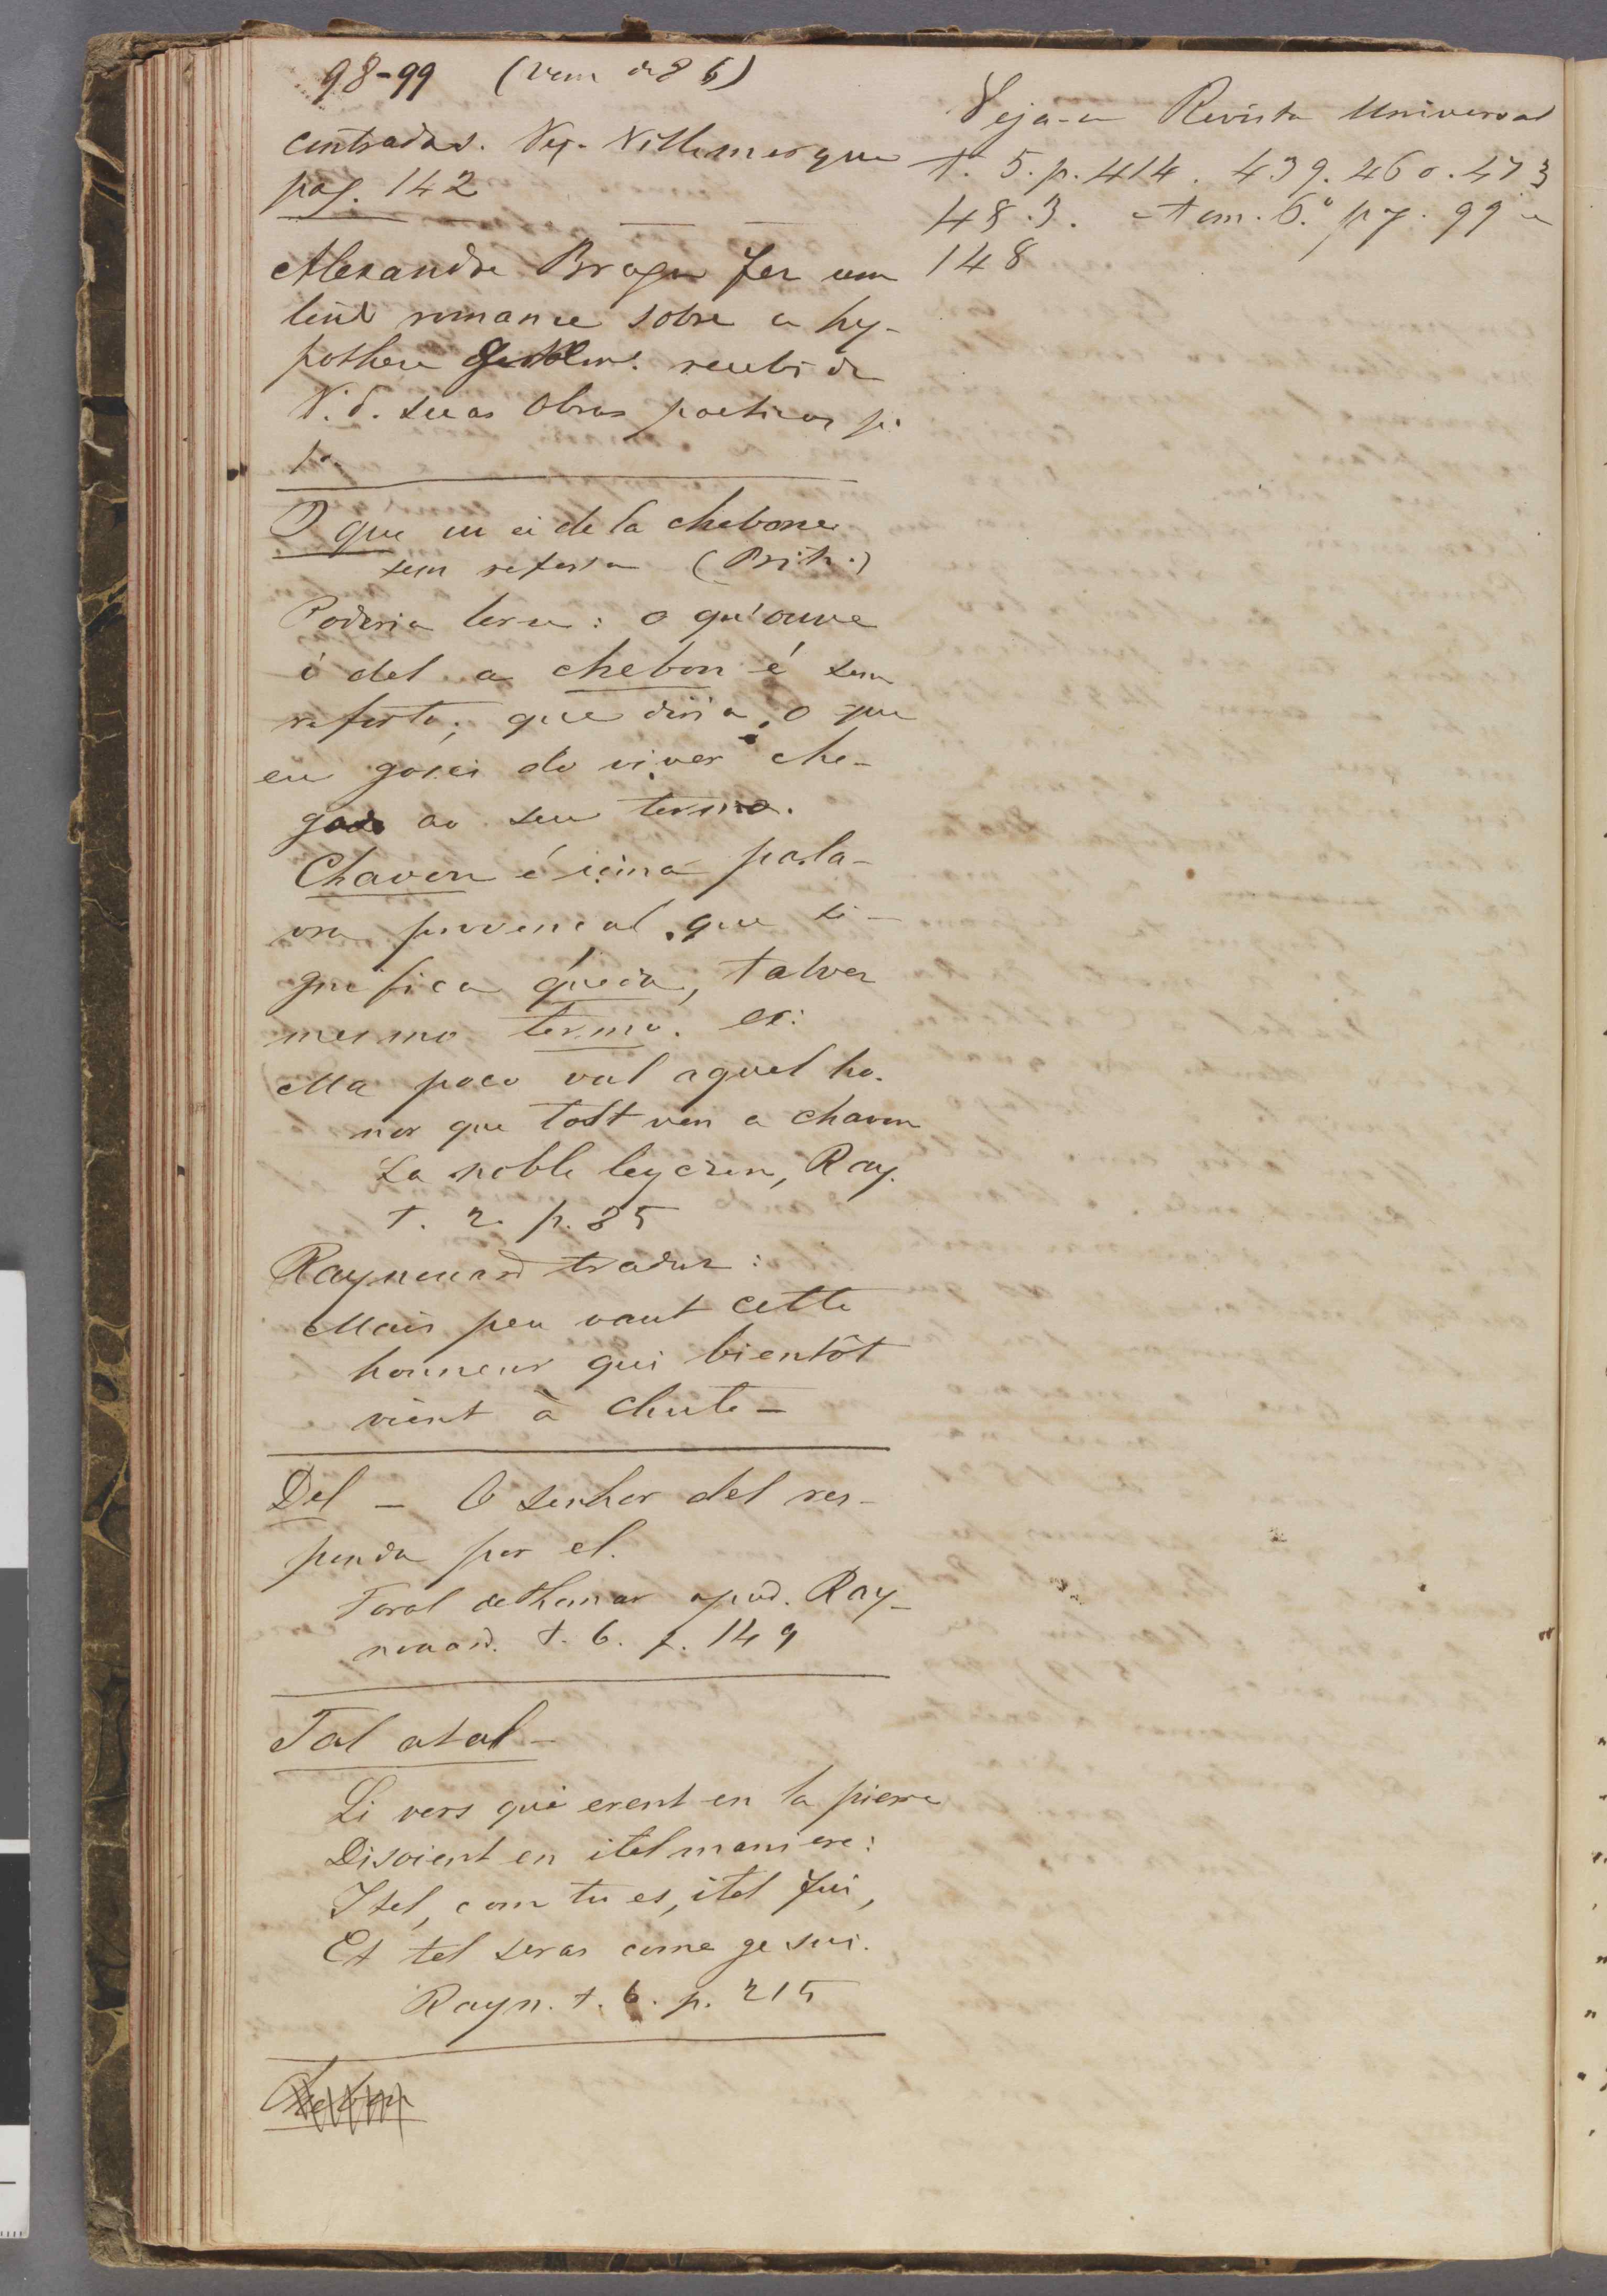 98-99 (Vem de 86)
contradas. Vej. Villemarque
pag. 142
Alexandre Braga fez um
lindo romance sobre a hy-
pothese recebida
V. d. suas Obras poeticas p.
1.
O que eu ei de la chebone
sem referta (Brith.)
Poderia ler-se: o qu'ouve
ó del a chebon é sem
referta; que diria, o que
eu gosei do viver che-
gado ao seu termo.
Chavon é uma pala-
vra provencal que si-
gnifica queda, talvez
mesmo termo. ex:
Ma poco val aquel ho-
nor que tost ven a chavon
La noble leyczon, Ray.
t. 2. p. 85
Raynouard traduz:
Mais peu vaut cette
honneur qui bientôt
vient à chute -
Del - O senhor del res-
ponda por el.
Foral de Thomar apud. Ray-
nouard. t. 6. p. 149
Tal atal -
Li vers qui erent en la pierre
Disoient en itel maniere:
Itel, com tu es, itel fui,
Et tel seras come ge sui.
Rayn. t. 6. p. 215
Chebon
Veja-se Revista Universal
t. 5. p. 414. 439. 460. 473
48.3. e tom. 6.º pag. 99 e
148